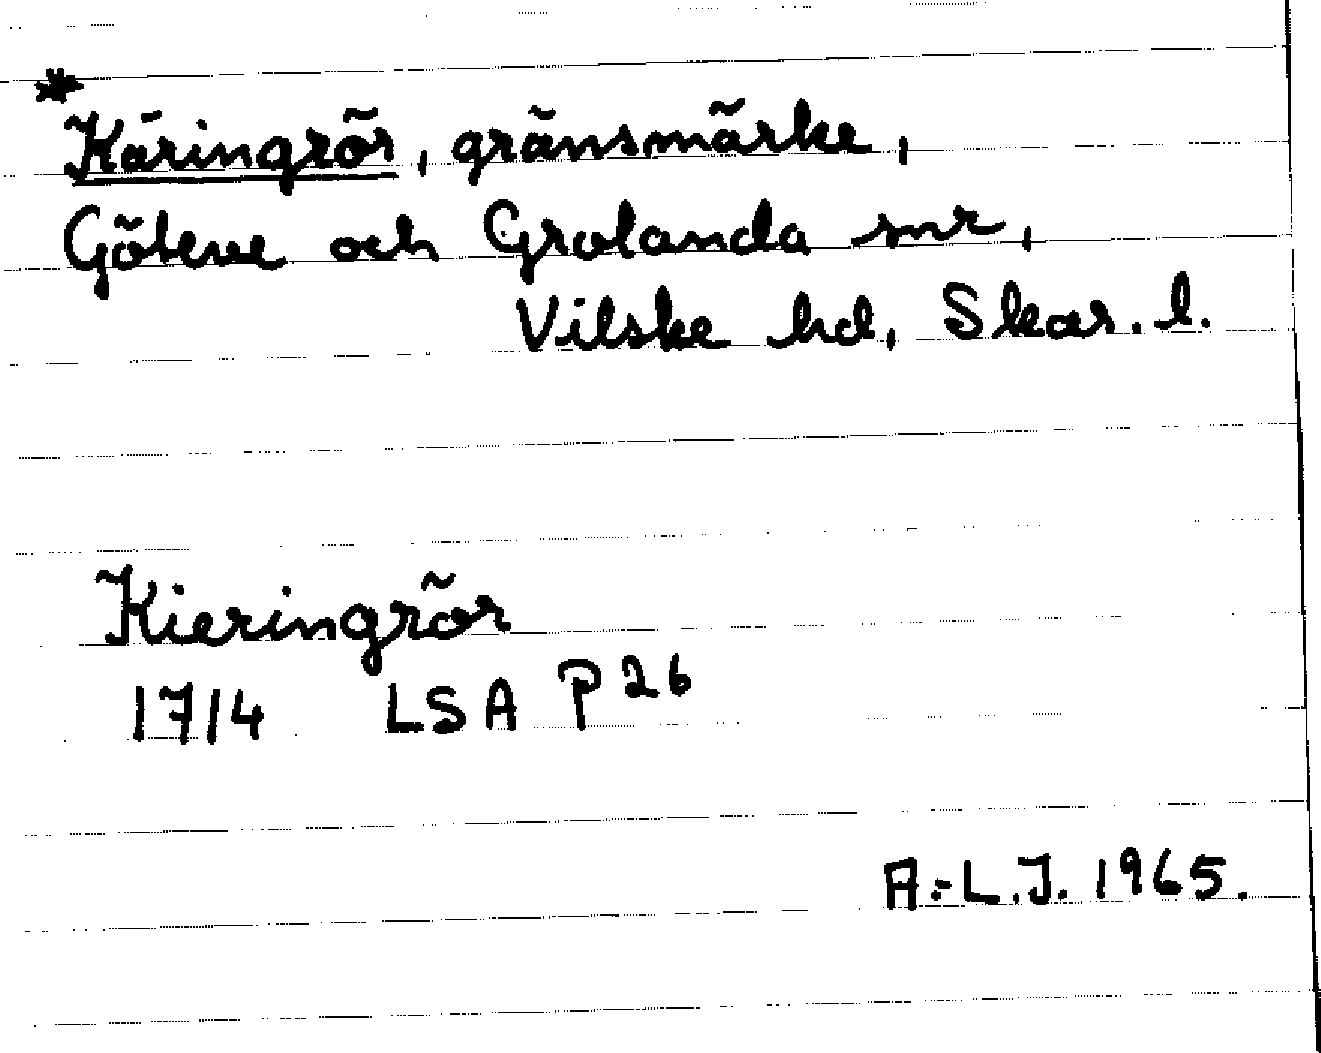 *
Käringrör, gränsmärke,
Göteve och Grolanda snr,
Vilske hd, Skar. l.
Kieringrör
1714 LSA P 26
A.-L.J. 1965.